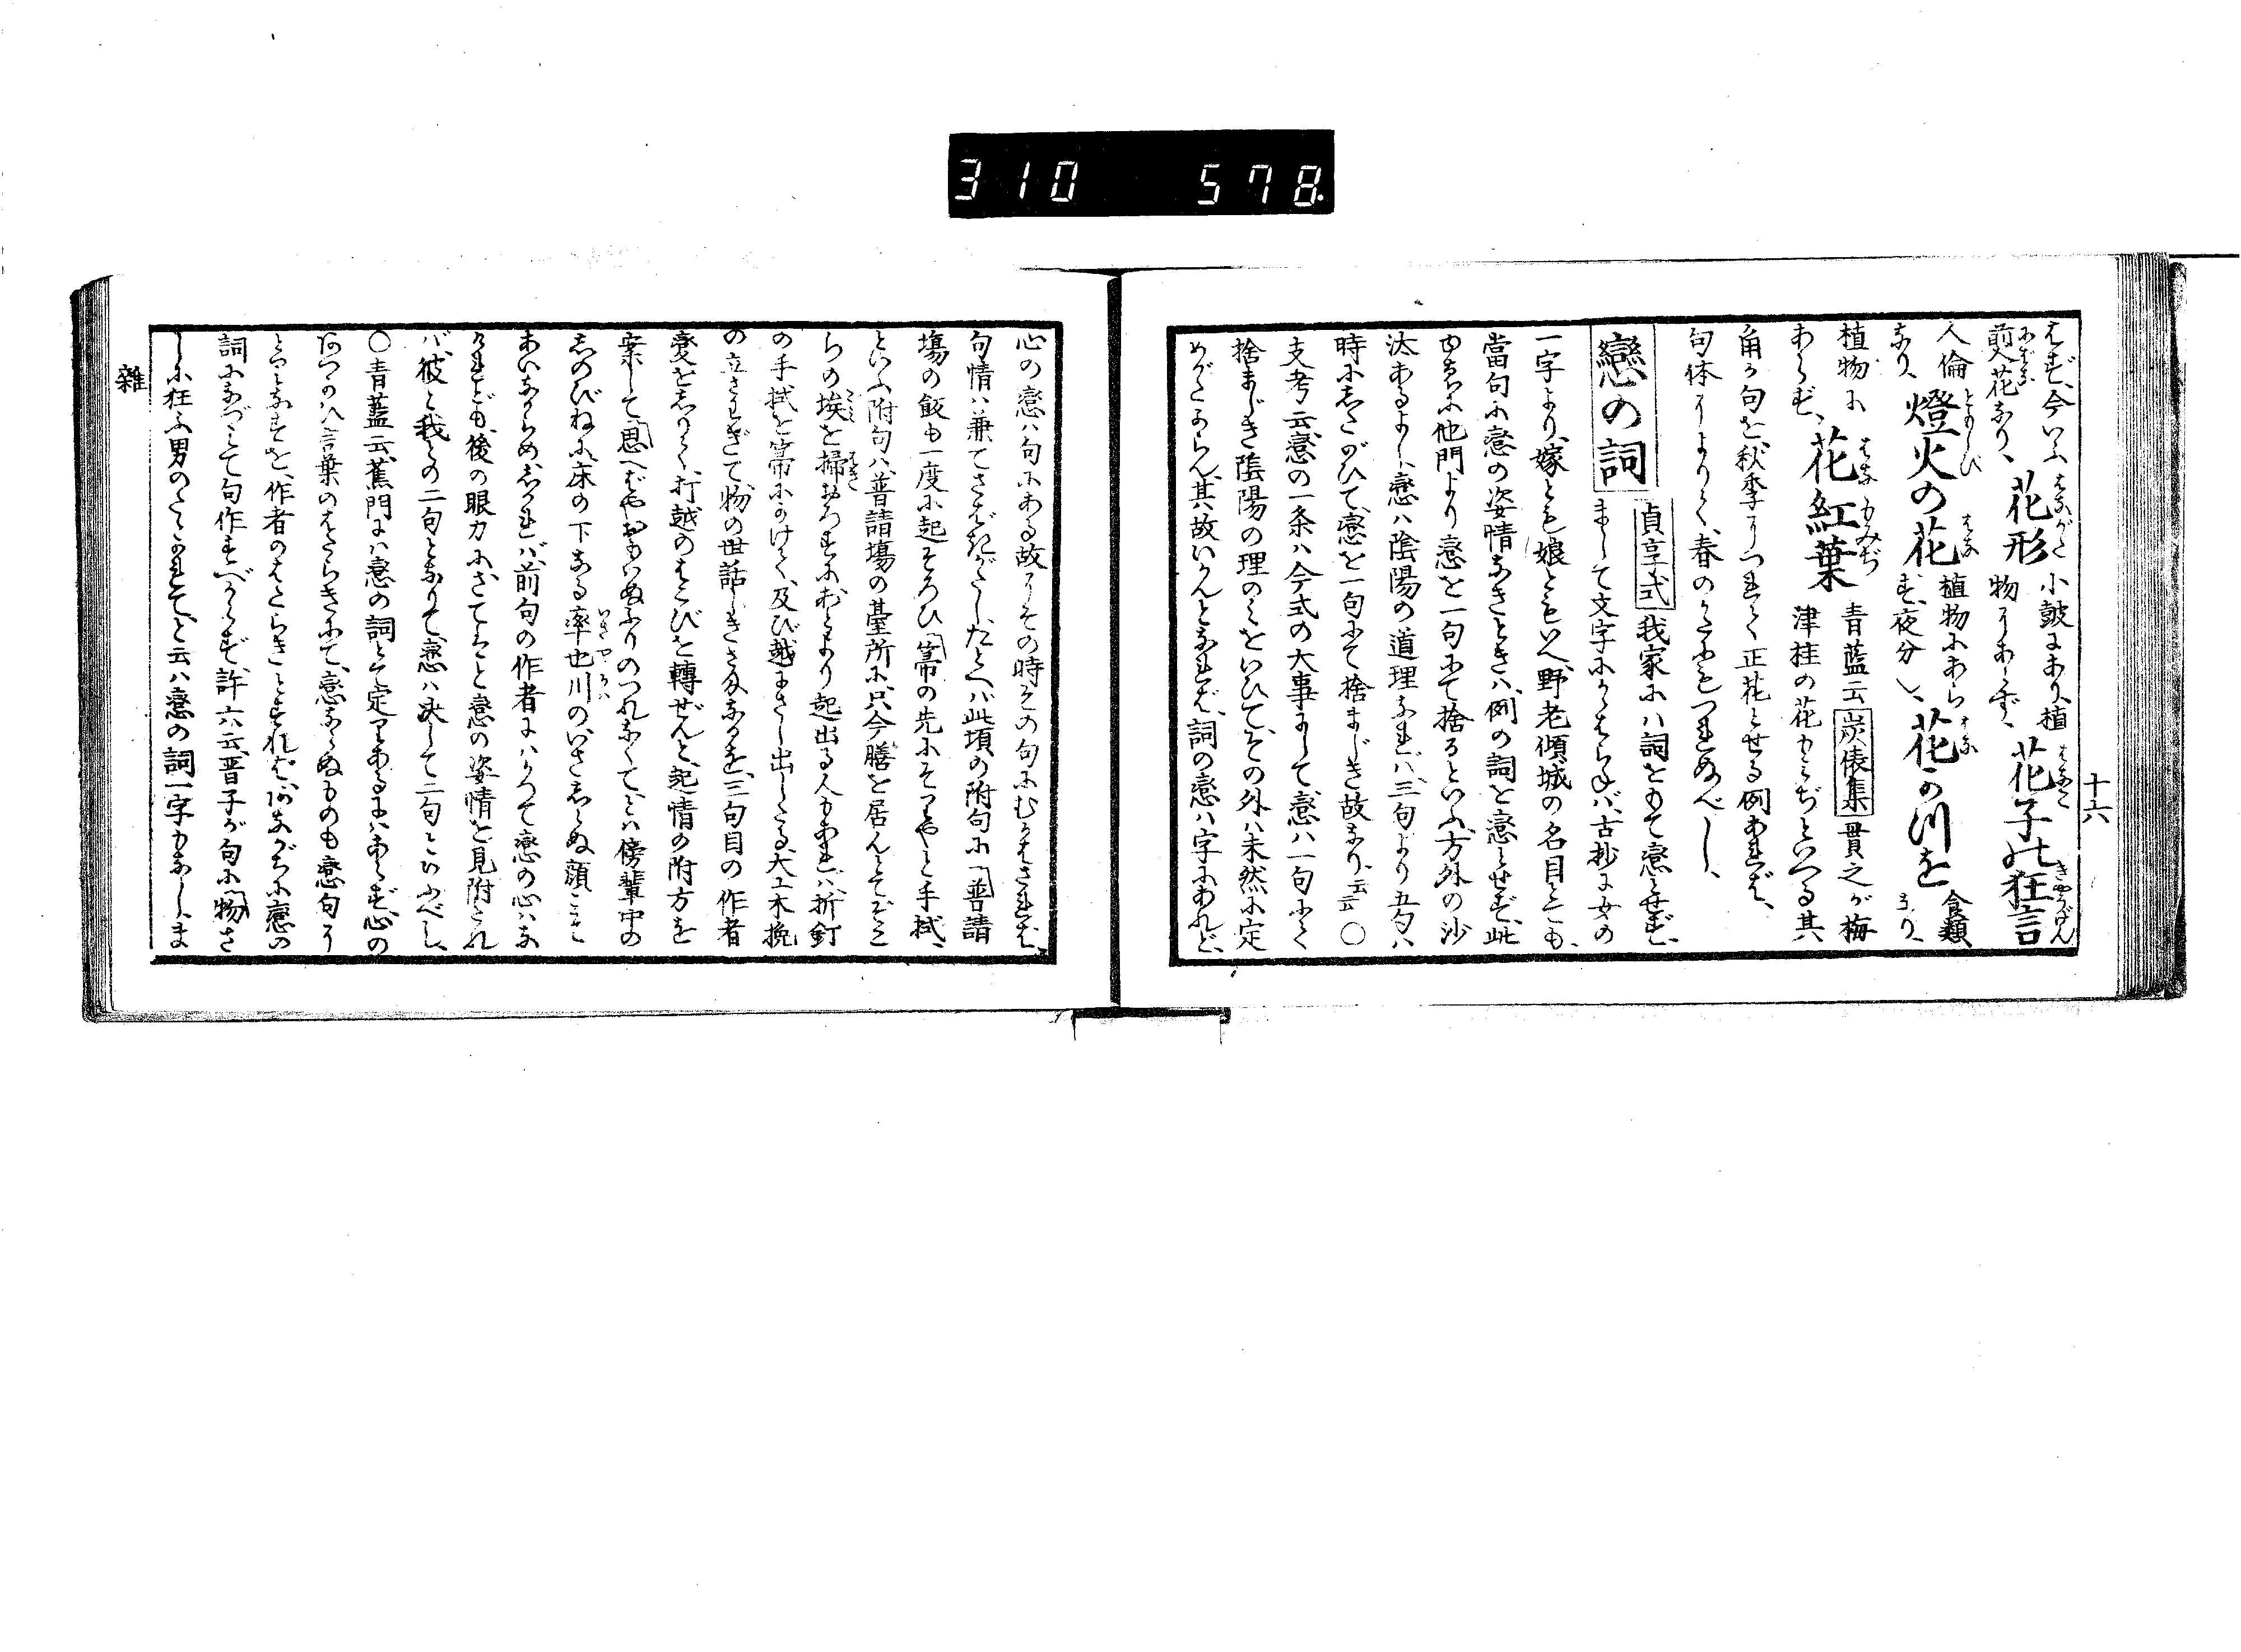 310 578
十六
らず、今いふ
花形
はながた
小皷にあり、植
物にあらず、
花子の狂言
はなご
きやうげん
人倫
なり、
燈火の花
ともしび
はな
植物にあら
ず、夜分
花かつを
はな
食類
なり、
植物に
あらず、
花紅葉
はなもみぢ
青藍云炭俵集貫之が梅
津桂の花もみぢといへる其
角が句を秋季につれて正花とせる例あれば、
句体によりて、春のかたにもつれぬべし、
戀の詞
貞享式我家にハ詞をもて戀とせず、
まして文字にかゝはらねバ、古抄に女の
一字より、嫁とも娘ともいへ、野老傾城の名目とても、
當句に戀の姿情なきときハ、例の詞を戀とせず、此
ゆゑに他門より戀を一句にて捨るといふ、方外の沙
汰あるよし、戀ハ陰陽の道理なれバ、三句より五句ハ
時にしたがひて、戀を一句にて捨まじき故なり、云云○
支考云戀の一条ハ今式の大事にして戀ハ一句にて
捨まじき陰陽の理のミをいひて、その外ハ未然に定
めがたからん、其故いかんとなれば、詞の戀ハ字にあれど、
心の戀ハ句にある故にその時その句にむかはざれば、
句情ハ兼てさだめがたし、たとへバ此頃の附句に「普請
塲の飯も一度に起そろひ「箒の先にそりやと手拭、
といふ附句ハ、普請塲の臺所に、只今膳を居んとてそこ
らの埃を掃おろすに、むくより起出る人もあれバ、折釘
の手拭を箒にかけて、及び越にさし出したる、大工木挽
の立さわぎて、物の世話しきさまなるを、三句目の作者
變をしりて、打越のはこびを轉ぜんと、起情の附方を
案して、「思へばやおもいぬふりのつれなくて、とハ傍輩中の
しのびねに、床の下なる率也川の、いさしらぬ顔こそ
あいなからめ、しかれバ、前句の作者にハかつて戀の心ハな
けれども、後の眼力に、さてこそと戀の姿情を見附たれ
バ、彼と我との二句となりて、戀ハ決して二句といふべし、
○青藍云、蕉門にハ戀の詞とて定りあるにハあらず、心の
あつかハ言葉のはたらきにて、戀ならぬものも戀句に
とりなすを、作者のはたらきとすれば、あながちに戀の
詞になづミて句作すべからず、許六云、晋子が句に「物さ
しに狂ふ男のたゝかれて、と云ハ戀の詞一字もなし、ま
雜